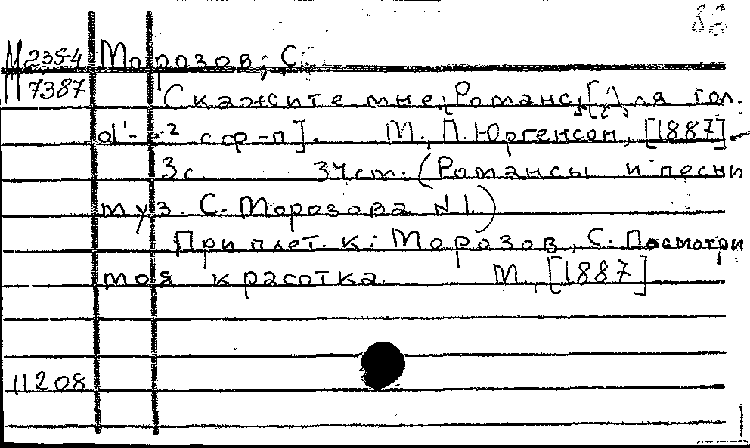 М 2354 Морозов, С.
7387 Скажите мне, Романс, [Для гол.
d'-e² с ф-п]. М., П. Юргенсон, [1887]
3 с. 34 см. (Романсы и песни
муз. С. Морозова N 1.)
При плет. к: Морозов, С. Посмотри
моя красотка. М., [1887]
11208